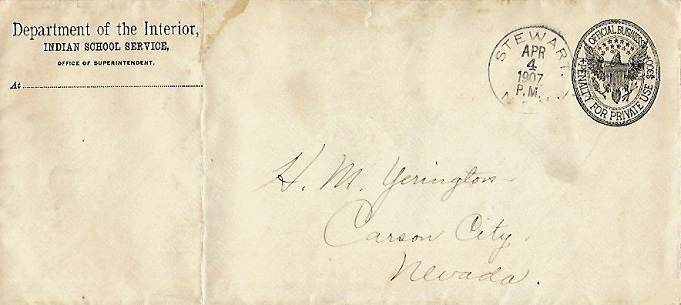 Department of the Interior,
INDIAN SCHOOL SERVICE,
OFFICE OF SUPERINTENDENT.
At
STEWART.
APR
4
1907
P.M.
OFFICIAL BUSINESS
PENALTY FOR PRIVATE USE $300
H. M. Yerington
Carson City,
Nevada.